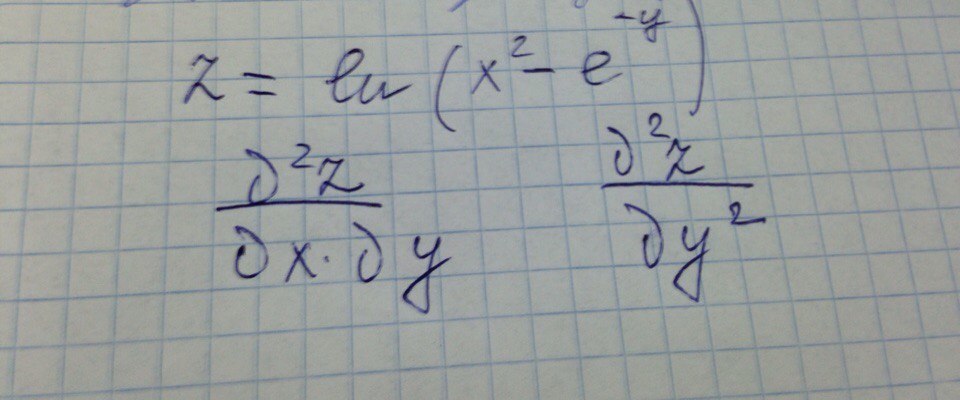 z = ln(x² - e^{-y})
∂²z/∂x·∂y ∂²z/∂y²